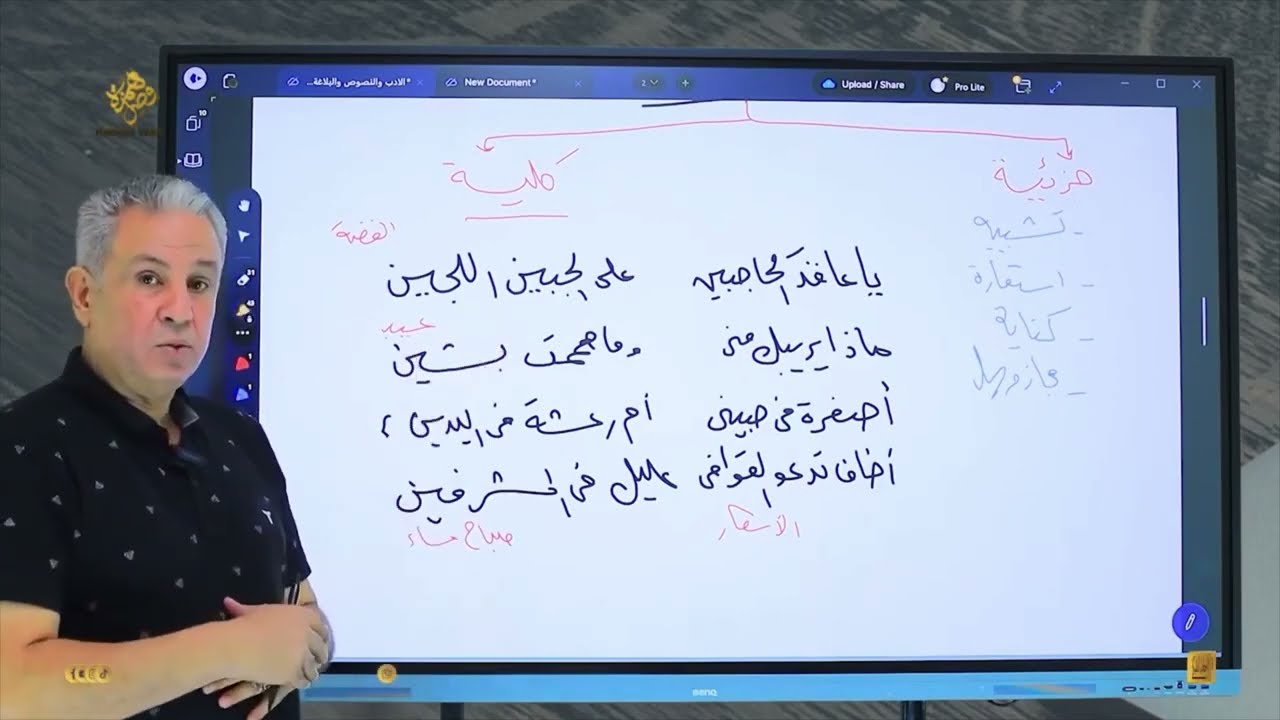 الادب والنصوص والبلاغة...*
New Document*
2
Upload / Share
Pro Lite
10
جزئية
كلية
- تشبيه
- استعارة
- كناية
- مجاز مرسل
الفضة
يا عاقد الحاجبين على الجبين اللجين
عيب
ماذا يريبك مني وما هممت بشين
أصفرة في جبيني أم رعشة في اليدين
أخاف تدعو القوافي عليك في المشرقين
الأشعار
صباح مساء
31
43
1
1
BenQ